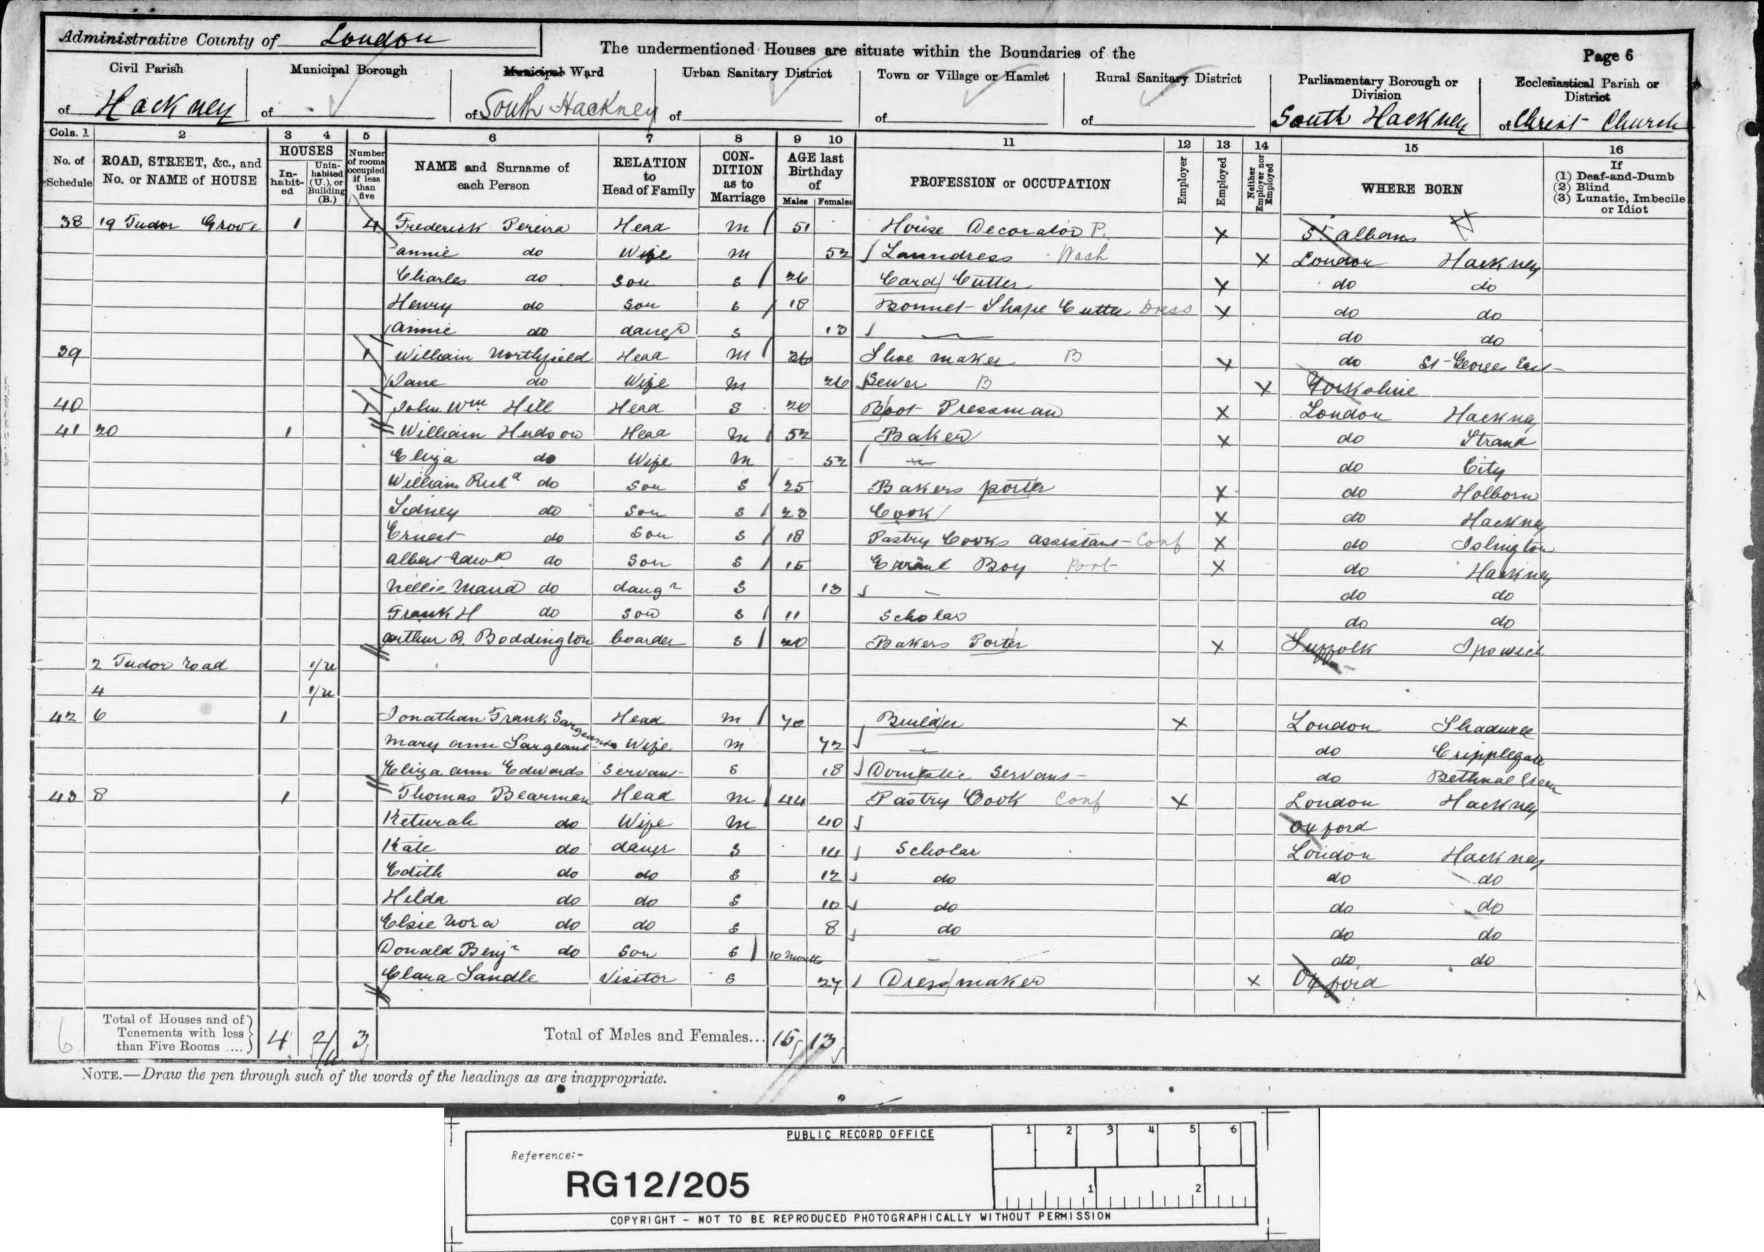 Administrative County of London
The undermentioned Houses are situate within the Boundaries of the
Page 6
Civil Parish of Hackney
Municipal Borough of
Municipal Ward of South Hackney
Urban Sanitary District of
Town or Village or Hamlet of
Rural Sanitary District of
Parliamentary Borough or Division South Hackney
Ecclesiastical Parish or District of Christ Church
Cols. 1 2 3 4 5 6 7 8 9 10 11 12 13 14 15 16
No. of Schedule
ROAD, STREET, &c., and No. or NAME of HOUSE
HOUSES
In-habit-ed
Unin-habited (U.), or Building (B.)
Number of rooms occupied if less than five
NAME and Surname of each Person
RELATION to Head of Family
CON-DITION as to Marriage
AGE last Birthday of
Males Females
PROFESSION or OCCUPATION
Employer
Employed
Neither Employer nor Employed
WHERE BORN
If (1) Deaf-and-Dumb (2) Blind (3) Lunatic, Imbecile or Idiot
38 19 Tudor Grove 1 4 Frederick Pereira Head M 51 House Decorator P. X St albans
annie do Wife M 52 Laundress Wash X London Hackney
Charles do Son S 26 Card Cutter X do do
Henry do Son S 18 Bonnet Shape Cutter Dress X do do
annie do daugr S 13 — do do
39 1 William Northfield Head M 26 Shoe maker B X do St George East
Jane do Wife M 26 Sewer B X Yorkshire
40 1 John Wm Hill Head S 20 Boot Pressman X London Hackney
41 20 1 William Hudson Head M 52 Baker X do Strand
Eliza do Wife M 52 — do City
William Richd do Son S 25 Bakers porter X do Holborn
Sidney do Son S 23 Cook X do Hackney
Ernest do Son S 18 Pastry Cooks assistant Conf X do Islington
albert Edwd do Son S 15 Errand Boy X do Hackney
Nellie Maud do daugr S 13 — do do
Frank H do Son S 11 Scholar do do
arthur J. Boddington boarder S 20 Bakers Porter X Suffolk Ipswich
2 Tudor road 1/u
4 1/u
42 6 1 Jonathan Frank Sargeant Head M 70 Builder X London Shadwell
Mary ann Sargeant Wife M 72 — do Cripplegate
Eliza ann Edwards Servant S 18 Domestic Servant do Bethnal Green
43 8 1 Thomas Bearman Head M 44 Pastry Cook Conf X London Hackney
Keturah do Wife M 40 Oxford
Kate do daugr S 14 Scholar London Hackney
Edith do do S 12 do do do
Hilda do do S 10 do do do
Elsie Nora do do S 8 do do do
Donald Benjn do Son S 10 months — do do
Clara Sandle Visitor S 27 Dressmaker X Oxford
6 Total of Houses and of Tenements with less than Five Rooms .... 4 2/u 3 Total of Males and Females... 15 13
NOTE.—Draw the pen through such of the words of the headings as are inappropriate.
PUBLIC RECORD OFFICE
1 2 3 4 5 6
Reference:-
RG12/205
1 2
COPYRIGHT - NOT TO BE REPRODUCED PHOTOGRAPHICALLY WITHOUT PERMISSION